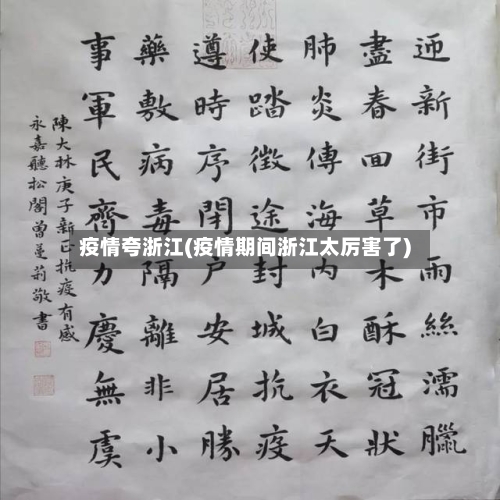 迎新街市雨絲濡臘
盡春回草木酥冠狀
肺炎傳海内白衣天
使踏徵途封城抗疫
遵時序閉户安居勝
藥敷病毒隔離非小
事軍民齊力慶無虞
陳大林庚子新正抗疫有感
永嘉聽松閣曾曼莉敬書
疫情夸浙江(疫情期间浙江太厉害了)